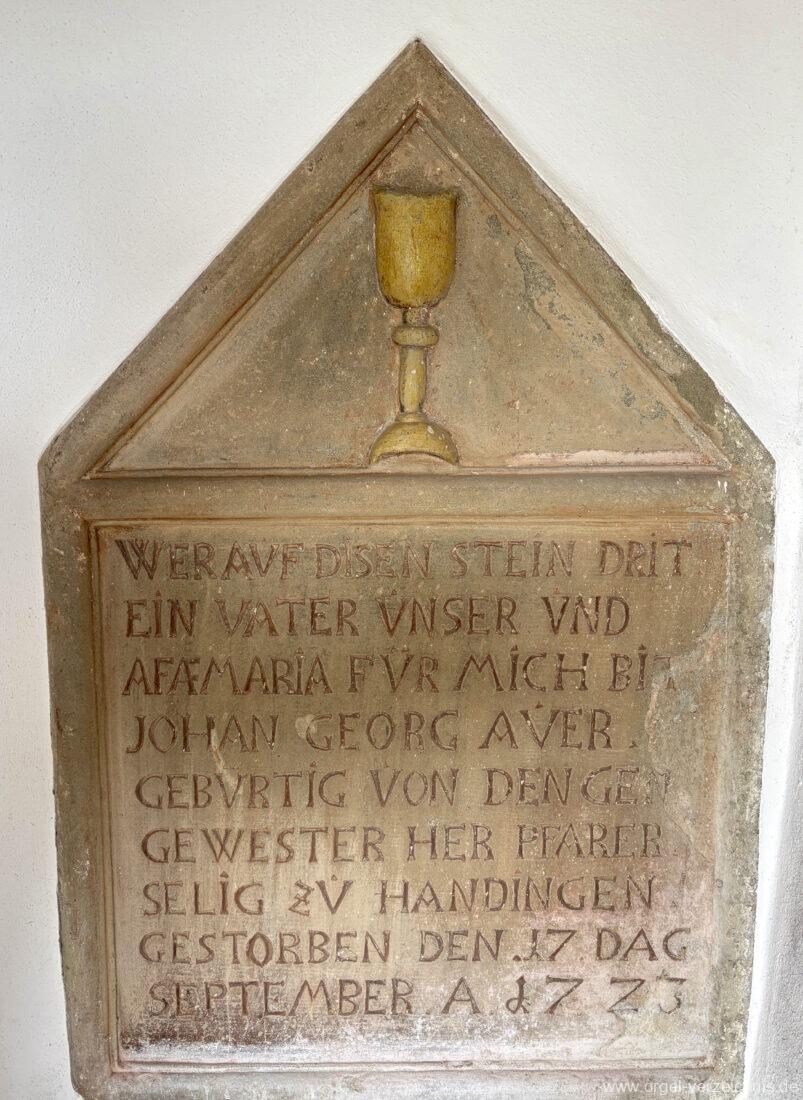 WER AVF DISEN STEIN DRIT
EIN VATER V̇NSER V̇ND
AFÆMARIA FV̈R MICH BIT
JOHAN GEORG AV̇ER.
GEBVRTIG VON DENGEN
GEWESTER HER PFARER
SELIG ZV̇ HANDINGEN.
GESTORBEN DEN.17.DAG
SEPTEMBER.A.1723
www.orgel-verzeichnis.de